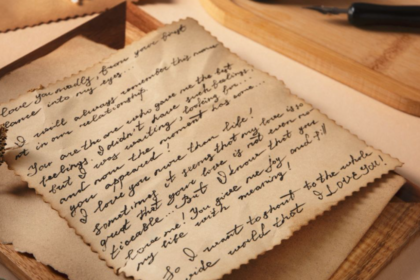 love you madly, from your first
glance into my eyes...
I will always remember this
at in our relationship.
You are the one who gave me the best
feelings. I didn't have such feelings...
but I was waiting, looking for...
and now the moment has come...
you appeared!
I love you more than life!
Sometimes it seems that my love is so
great that your love is not even no
ticeable... But I know that you
love me! You give me joy and fill
my life with meaning!
So I want to shout to the whole
wide world that I LOVE YOU!